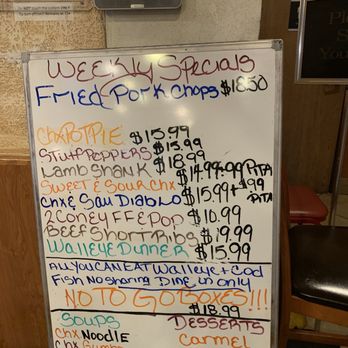 Weekly Specials
Fried Pork Chops $18.50
Chx Pot Pie $15.99
Stuff Peppers $15.99
Lamb Shank $18.99
Sweet & Sour Chx $14.99
Chx & Sau Diablo $15.99 + .99 Pita
2 Coney FF & Pop $10.99
Beef Short Ribs $19.99
Walleye Dinner $15.99
All you can eat Walleye + Cod
Fish No sharing Dine in only
No To Go Boxes!!!
$18.99
Soups
Desserts
Chx Noodle
Carmel
Chx Gumbo